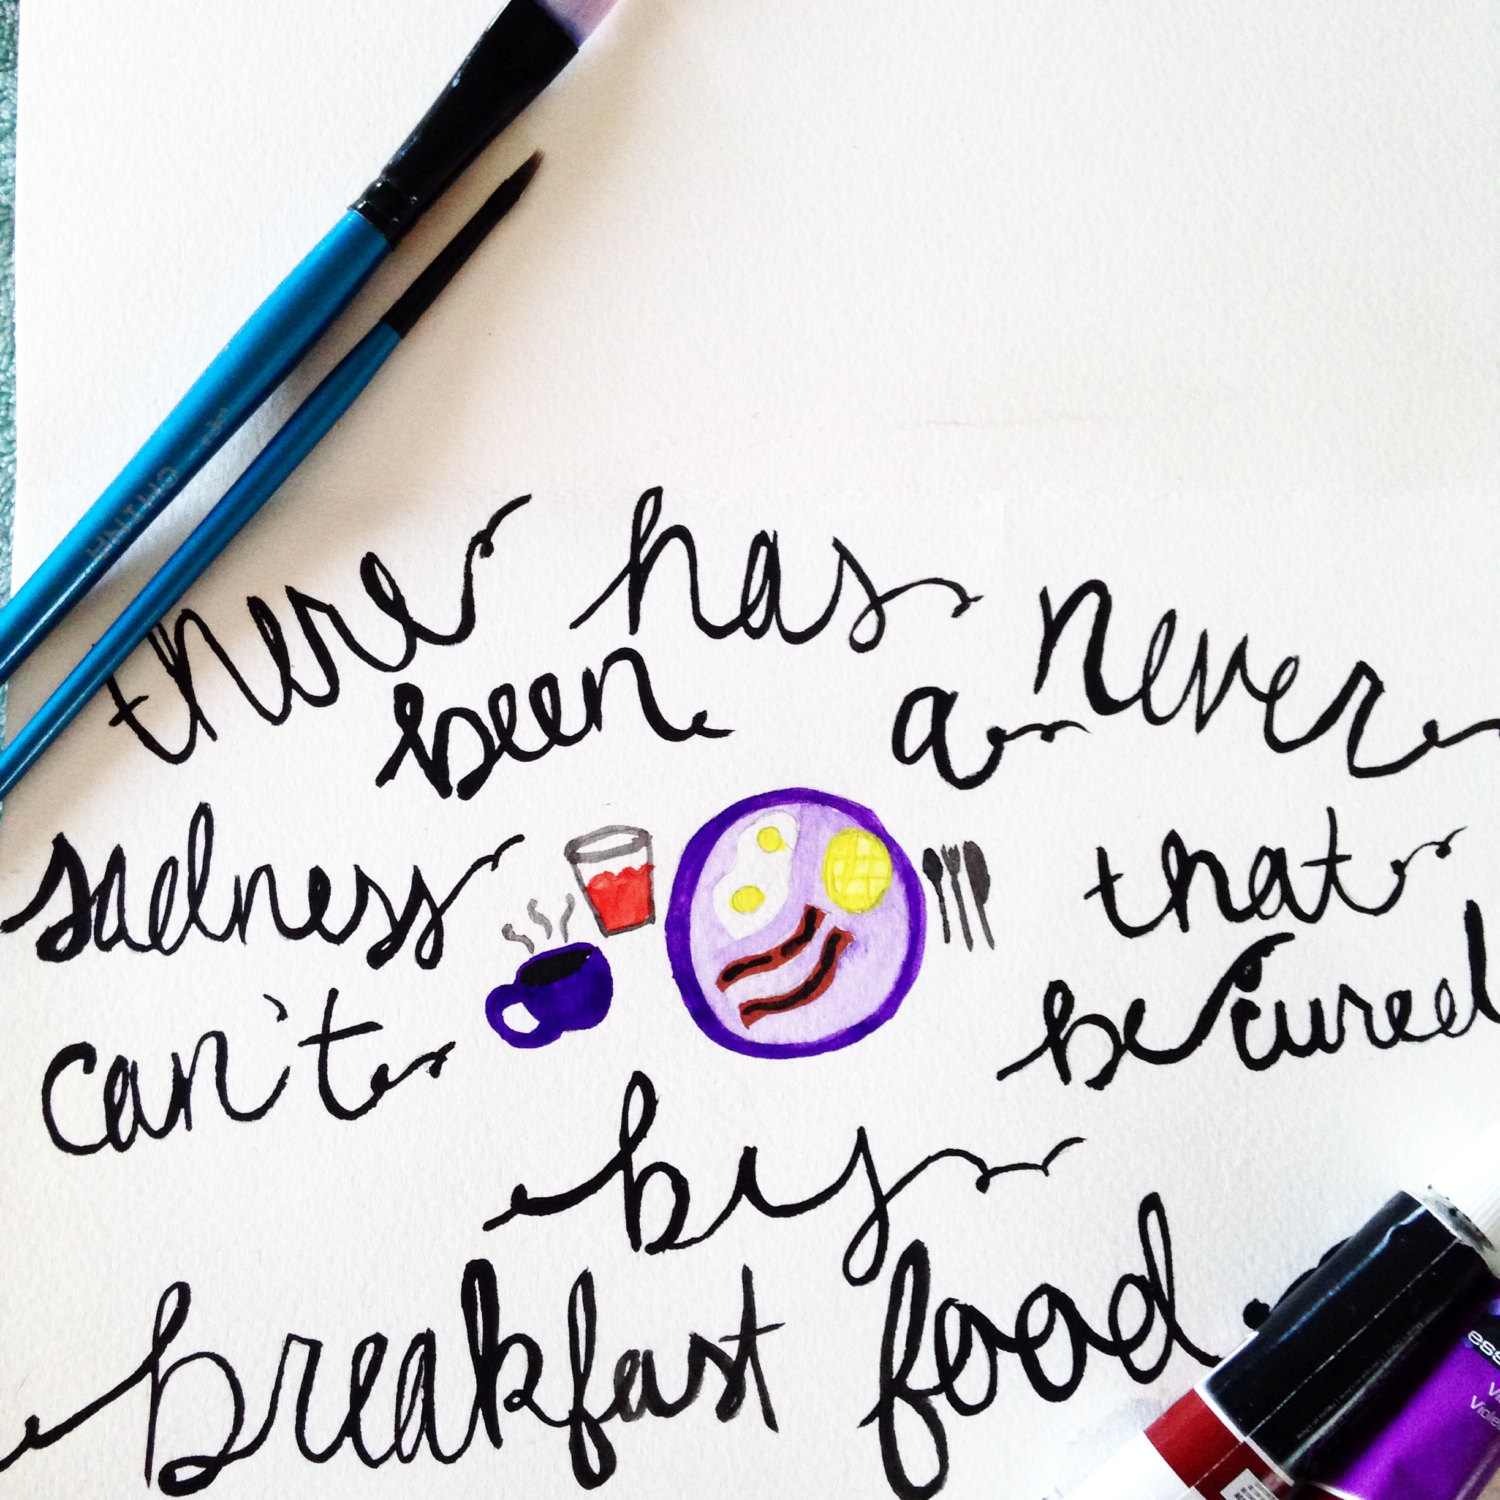 there has never
been a
sadness that
can't be cured
by
breakfast food.
ess